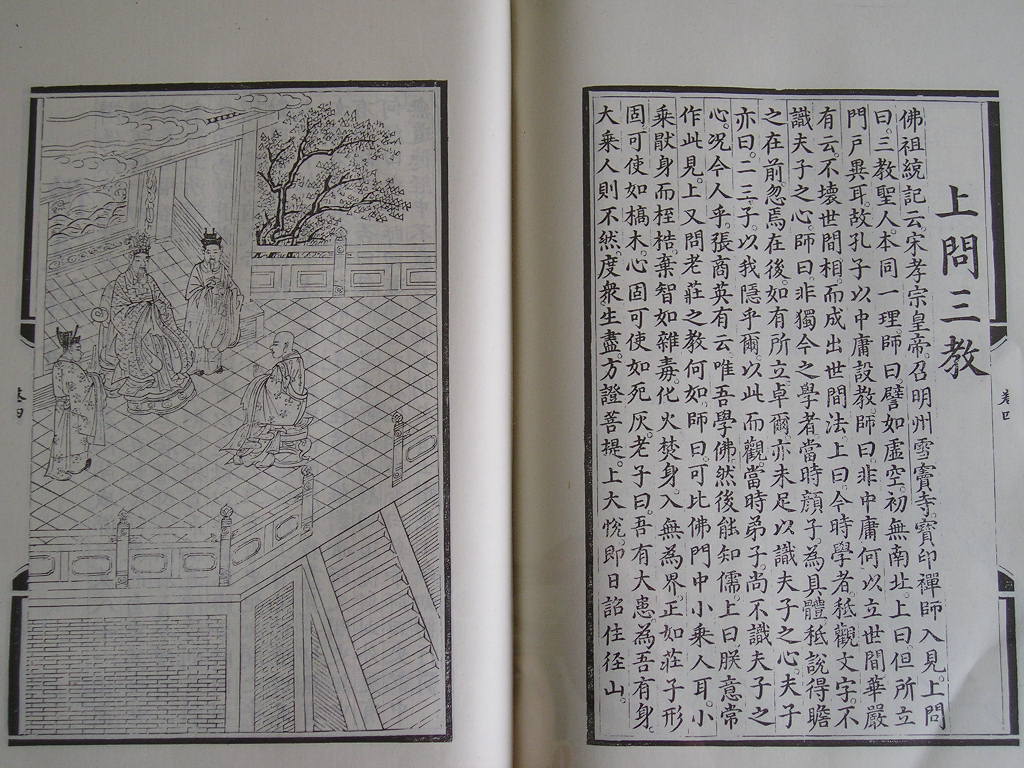 上問三教
佛祖統記云。宋孝宗皇帝。召明州雪竇寺。寶印禪師入見。上問
曰。三教聖人。本同一理。師曰。譬如虛空。初無南北。上曰。但所立
門戶異耳。故孔子以中庸設教。師曰。非中庸何以立世間。華嚴
有云不壞世間相。而成出世間法。上曰。今時學者秪觀文字。不
識夫子之心。師曰非獨今之學者。當時顏子。為具體秪說得瞻
之在前。忽焉在後。如有所立卓爾。亦未足以識夫子之心。夫子
亦曰。二三子。以我隱乎爾。以此而觀。當時弟子。尚不識夫子之
心。况今人乎。張商英有云。唯吾學佛然後能知儒。上曰朕意常
作此見。上又問老莊之教何如。師曰。可比佛門中小乘人耳。小
乘厭身而桎梏。棄智如雜毒。化火焚身。入無為界。正如莊子形
固可使如槁木。心固可使如死灰。老子曰。吾有大患。為吾有身。
大乘人則不然。度衆生盡。方證菩提。上大悅。即日詔住徑山。
卷四
卷四